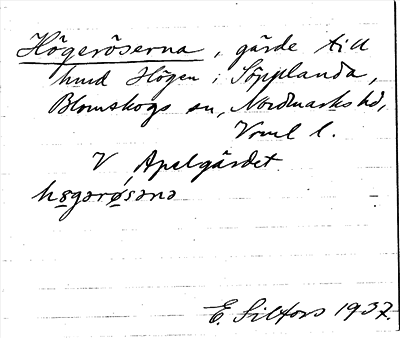 Högeröserna, gärde till
hmd Högen i Söpplanda,
Blomskogs sn, Nordmarks hd,
Vrml l.
V Apelgärdet
høgərø̀sənə
E. Silfors 1937.